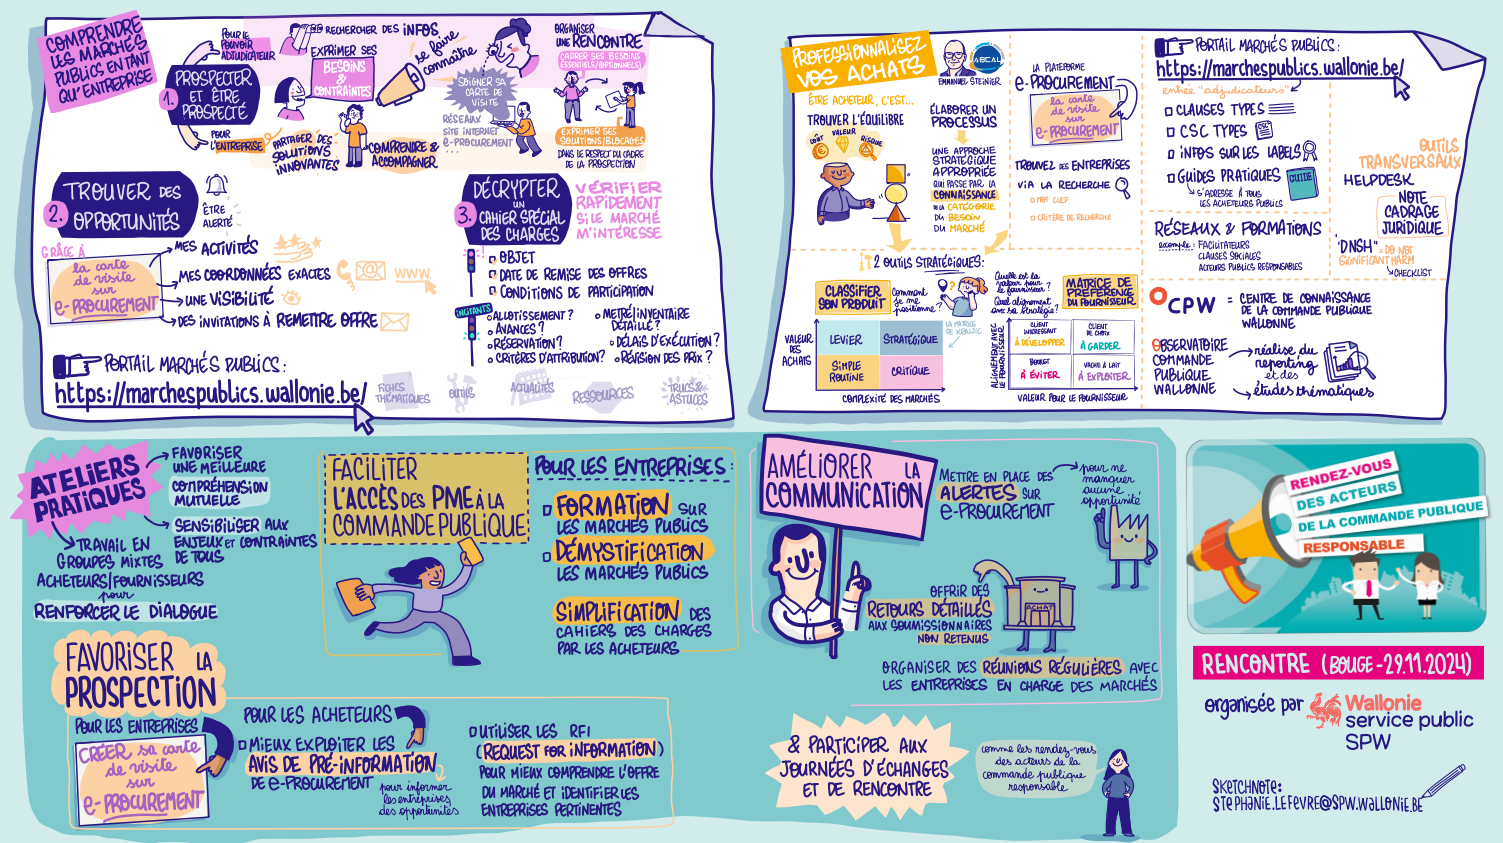 COMPRENDRE
LES MARCHÉS
PUBLICS EN TANT
QU'ENTREPRISE
1.
PROSPECTER
ET ÊTRE
PROSPECTÉ
POUR LE
POUVOIR
ADJUDICATEUR
RECHERCHER DES INFOS
EXPRIMER SES
BESOINS
&
CONTRAINTES
se faire
connaître
SOIGNER SA
CARTE DE
VISITE
RÉSEAUX
SITE INTERNET
e-PROCUREMENT
...
ORGANISER
UNE RENCONTRE
CADRER SES BESOINS
ESSENTIELS/OPTIONNELS)
EXPRIMER SES
SOLUTIONS/BLOCAGES
DANS LE RESPECT DU CADRE
DE LA PROSPECTION
POUR
L'ENTREPRISE
PARTAGER DES
SOLUTIONS
INNOVANTES
COMPRENDRE &
ACCOMPAGNER
2.
TROUVER DES
OPPORTUNITÉS
ÊTRE
ALERTÉ
GRÂCE À
la carte
de visite
sur
e-PROCUREMENT
MES ACTIVITÉS
MES COORDONNÉES EXACTES
www.
UNE VISIBILITÉ
DES INVITATIONS À REMETTRE OFFRE
3.
DÉCRYPTER
UN
CAHIER SPÉCIAL
DES CHARGES
VÉRIFIER
RAPIDEMENT
SI LE MARCHÉ
M'INTÉRESSE
OBJET
DATE DE REMISE DES OFFRES
CONDITIONS DE PARTICIPATION
INCITANTS
ALLOTISSEMENT?
AVANCES?
RÉSERVATION?
CRITÈRES D'ATTRIBUTION?
METRÉ/INVENTAIRE
DÉTAILLÉ?
DÉLAIS D'EXÉCUTION?
RÉVISION DES PRIX?
PORTAIL MARCHÉS PUBLICS:
https://marchespublics.wallonie.be/
FICHES
THÉMATIQUES
OUTILS
ACTUALITÉS
RESSOURCES
TRUCS &
ASTUCES
PROFESSIONNALISEZ
VOS ACHATS
ABCAL
EMMANUEL STEINIER
ÊTRE ACHETEUR, C'EST...
TROUVER L'ÉQUILIBRE
COÛT
VALEUR
RISQUE
ÉLABORER UN
PROCESSUS
UNE APPROCHE
STRATÉGIQUE
APPROPRIÉE
QUI PASSE PAR LA
CONNAISSANCE
DE LA CATÉGORIE
DU BESOIN
DU MARCHÉ
LA PLATEFORME
e-PROCUREMENT
la carte
de visite
sur
e-PROCUREMENT
TROUVEZ DES ENTREPRISES
VIA LA RECHERCHE
MOT CLEF
CRITÈRE DE RECHERCHE
2 OUTILS STRATÉGIQUES:
CLASSIFIER
SON PRODUIT
Comment
je me
positionne?
LA MATRICE
DE KRALJIC
VALEUR
DES
ACHATS
LEVIER
STRATÉGIQUE
SIMPLE
ROUTINE
CRITIQUE
COMPLEXITÉ DES MARCHÉS
Quelle est la
valeur pour
le fournisseur?
Quel alignement
avec sa stratégie?
MATRICE DE
PRÉFÉRENCE
DU FOURNISSEUR
ALIGNEMENT AVEC
LE FOURNISSEUR
CLIENT
INTÉRESSANT
À DÉVELOPPER
CLIENT
DE CHOIX
À GARDER
BOULET
À ÉVITER
VACHE À LAIT
À EXPLOITER
VALEUR POUR LE FOURNISSEUR
PORTAIL MARCHÉS PUBLICS:
https://marchespublics.wallonie.be/
entrée "adjudicateurs"
CLAUSES TYPES
CSC TYPES
INFOS SUR LES LABELS
GUIDES PRATIQUES
GUIDE
S'ADRESSE À TOUS
LES ACHETEURS PUBLICS
OUTILS
TRANSVERSAUX
HELPDESK
NOTE
CADRAGE
JURIDIQUE
"DNSH" = DO NOT
SIGNIFICANT HARM
CHECKLIST
RÉSEAUX & FORMATIONS
exemple: FACILITATEURS
CLAUSES SOCIALES
ACTEURS PUBLICS RESPONSABLES
OCPW = CENTRE DE CONNAISSANCE
DE LA COMMANDE PUBLIQUE
WALLONNE
OBSERVATOIRE
COMMANDE
PUBLIQUE
WALLONNE
réalise du
reporting
et des
études thématiques
ATELIERS
PRATIQUES
FAVORISER
UNE MEILLEURE
COMPRÉHENSION
MUTUELLE
SENSIBILISER AUX
ENJEUX ET CONTRAINTES
DE TOUS
TRAVAIL EN
GROUPES MIXTES
ACHETEURS/FOURNISSEURS
pour
RENFORCER LE DIALOGUE
FACILITER
L'ACCÈS DES PME À LA
COMMANDE PUBLIQUE
POUR LES ENTREPRISES:
FORMATION SUR
LES MARCHÉS PUBLICS
DÉMYSTIFICATION
LES MARCHÉS PUBLICS
SIMPLIFICATION DES
CAHIERS DES CHARGES
PAR LES ACHETEURS
AMÉLIORER LA
COMMUNICATION
METTRE EN PLACE DES
ALERTES SUR
e-PROCUREMENT
pour ne
manquer
aucune
opportunité
OFFRIR DES
RETOURS DÉTAILLÉS
AUX SOUMISSIONNAIRES
NON RETENUS
ACHAT
ORGANISER DES RÉUNIONS RÉGULIÈRES AVEC
LES ENTREPRISES EN CHARGE DES MARCHÉS
FAVORISER LA
PROSPECTION
POUR LES ENTREPRISES
CRÉER sa carte
de visite
sur
e-PROCUREMENT
POUR LES ACHETEURS
MIEUX EXPLOITER LES
AVIS DE PRÉ-INFORMATION
DE e-PROCUREMENT
pour informer
les entreprises
des opportunités
UTILISER LES RFI
(REQUEST FOR INFORMATION)
POUR MIEUX COMPRENDRE L'OFFRE
DU MARCHÉ ET IDENTIFIER LES
ENTREPRISES PERTINENTES
& PARTICIPER AUX
JOURNÉES D'ÉCHANGES
ET DE RENCONTRE
comme les rendez-vous
des acteurs de la
commande publique
responsable
RENDEZ-VOUS
DES ACTEURS
DE LA COMMANDE PUBLIQUE
RESPONSABLE
RENCONTRE (BOUGE - 29.11.2024)
organisée par
Wallonie
service public
SPW
SKETCHNOTE:
STEPHANIE.LEFEVRE@SPW.WALLONIE.BE